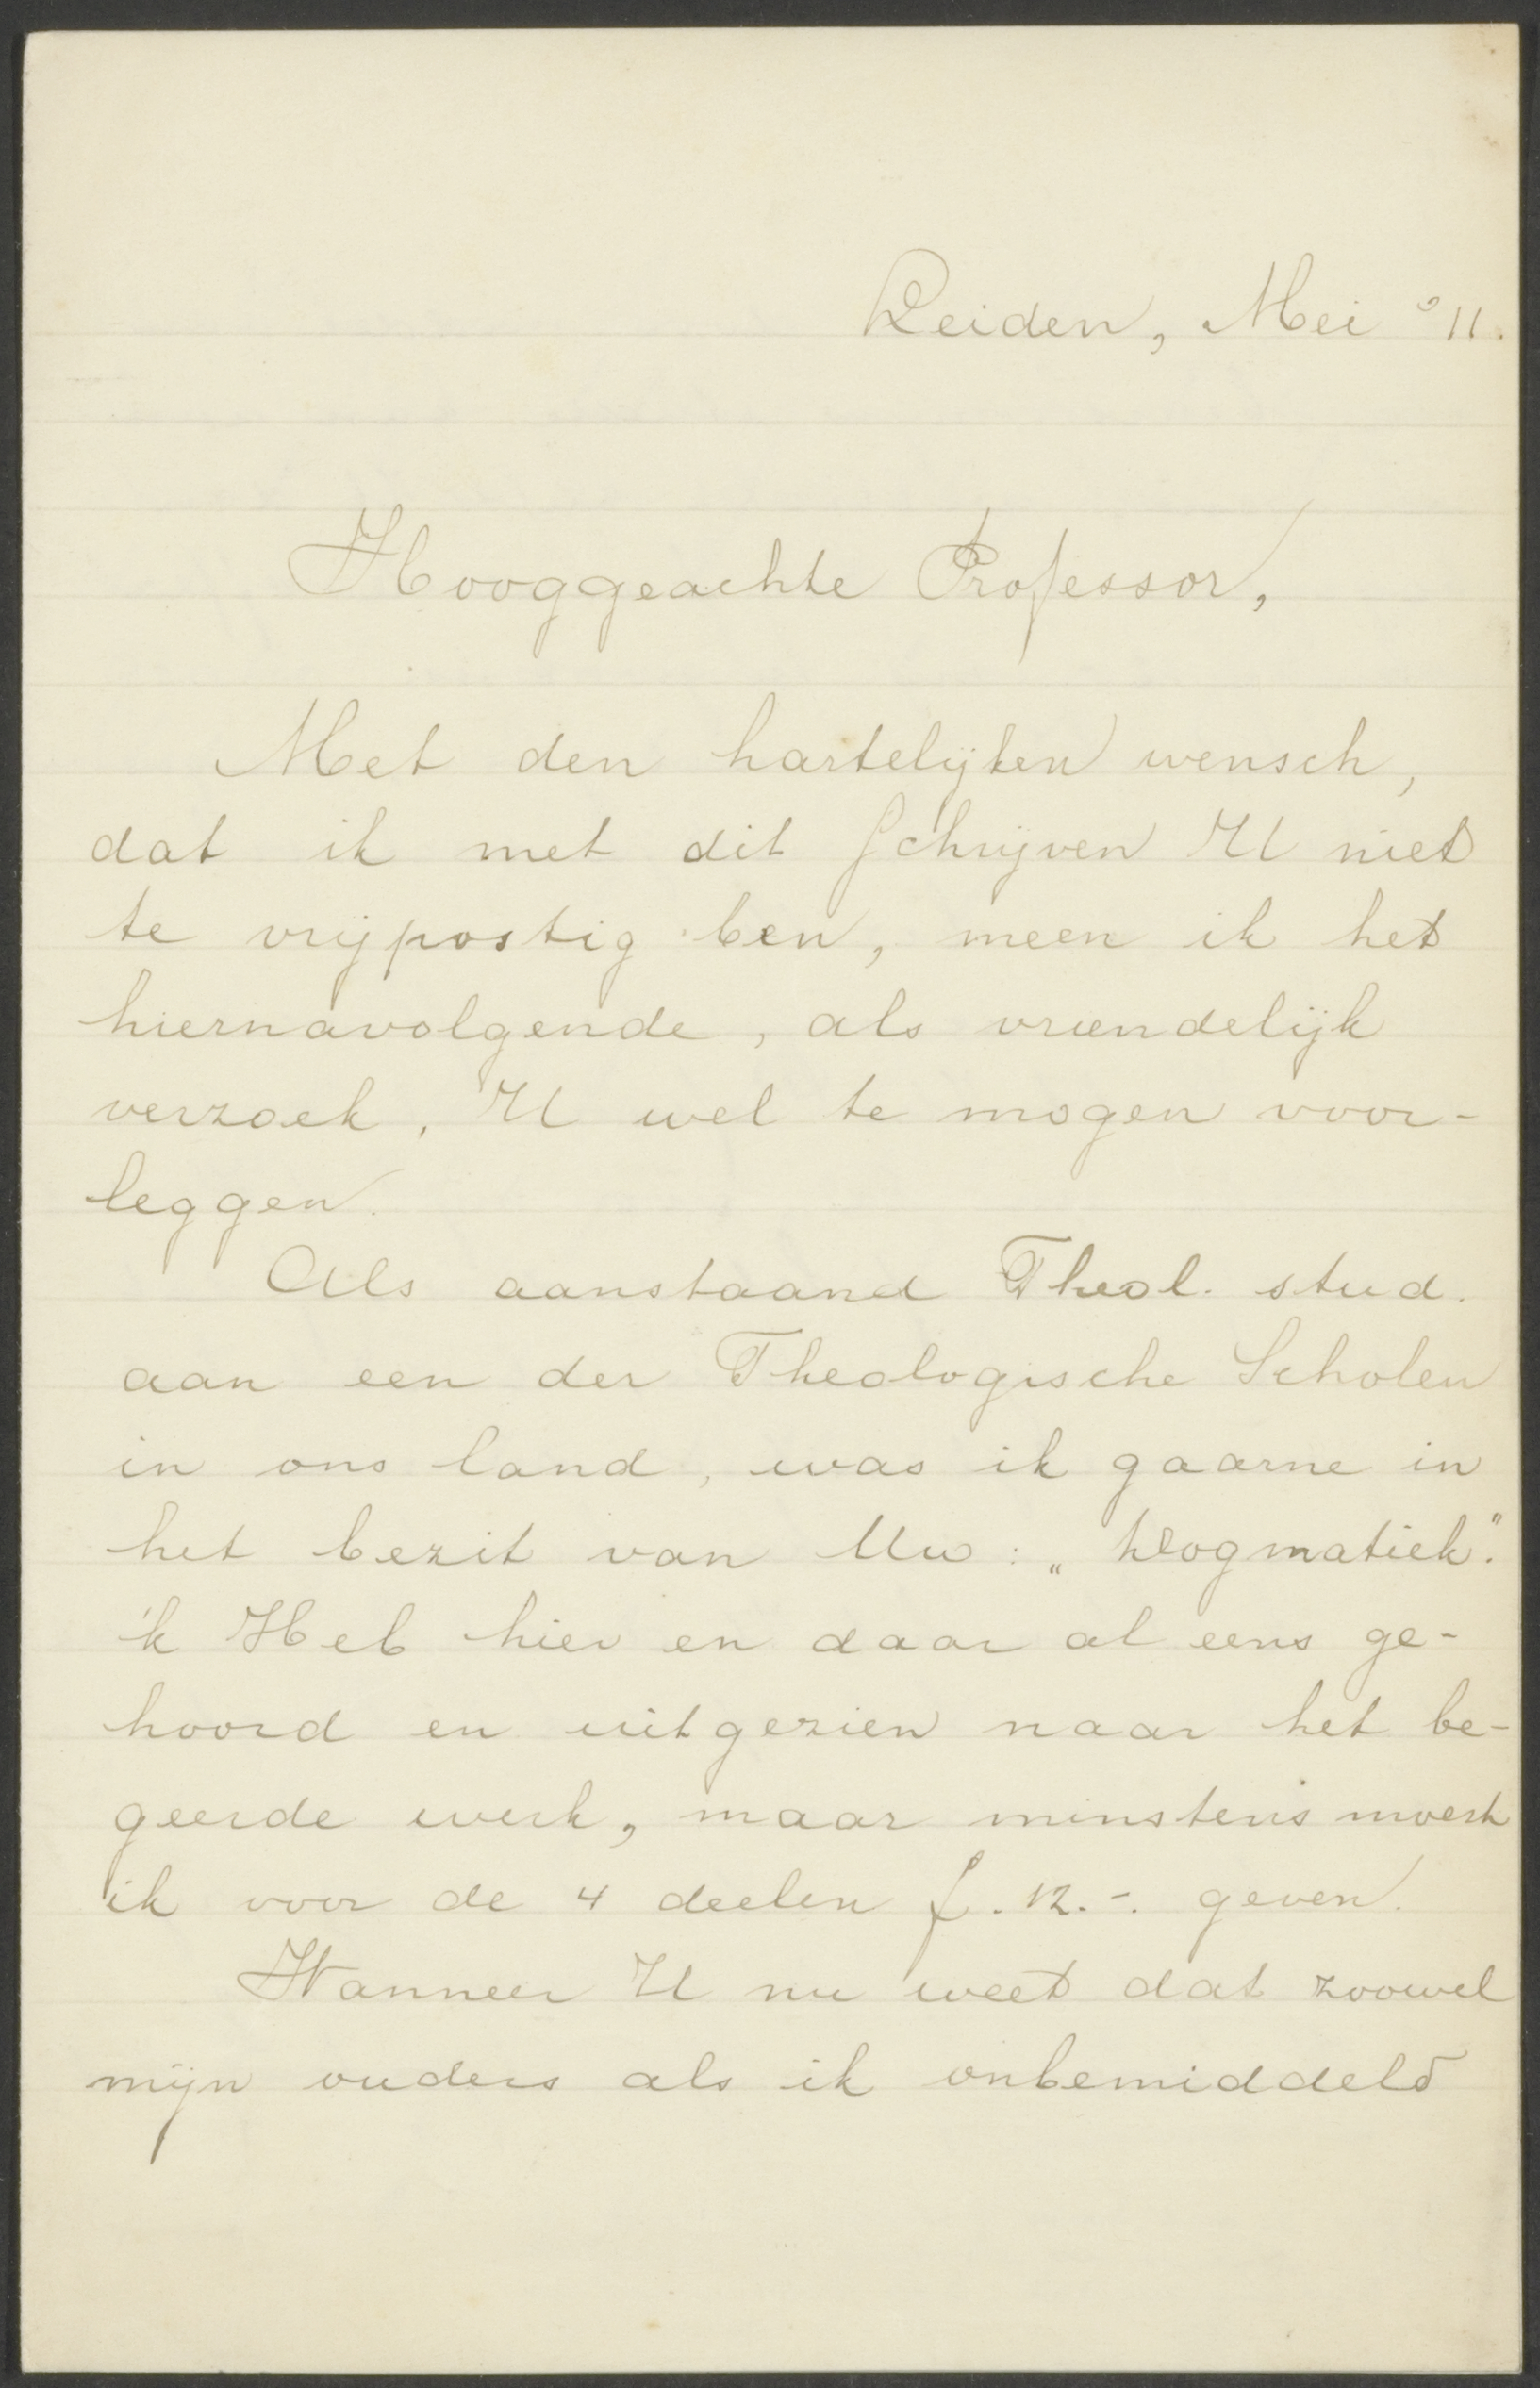 Leiden, Mei '11.
Hooggeachte Professor,
Met den hartelijken wensch,
dat ik met dit schrijven U niet
te vrijpostig ben, meen ik het
hiernavolgende, als vriendelijk
verzoek, U wel te mogen voor-
leggen.
Als aanstaand Theol. stud.
aan een der Theologische Scholen
in ons land, was ik gaarne in
het bezit van Uw: „Dogmatiek".
'k Heb hier en daar al eens ge-
hoord en uitgezien naar het be-
geerde werk, maar minstens moest
ik voor de 4 deelen f. 12.-. geven.
Wanneer U nu weet dat zoowel
mijn ouders als ik onbemiddeld